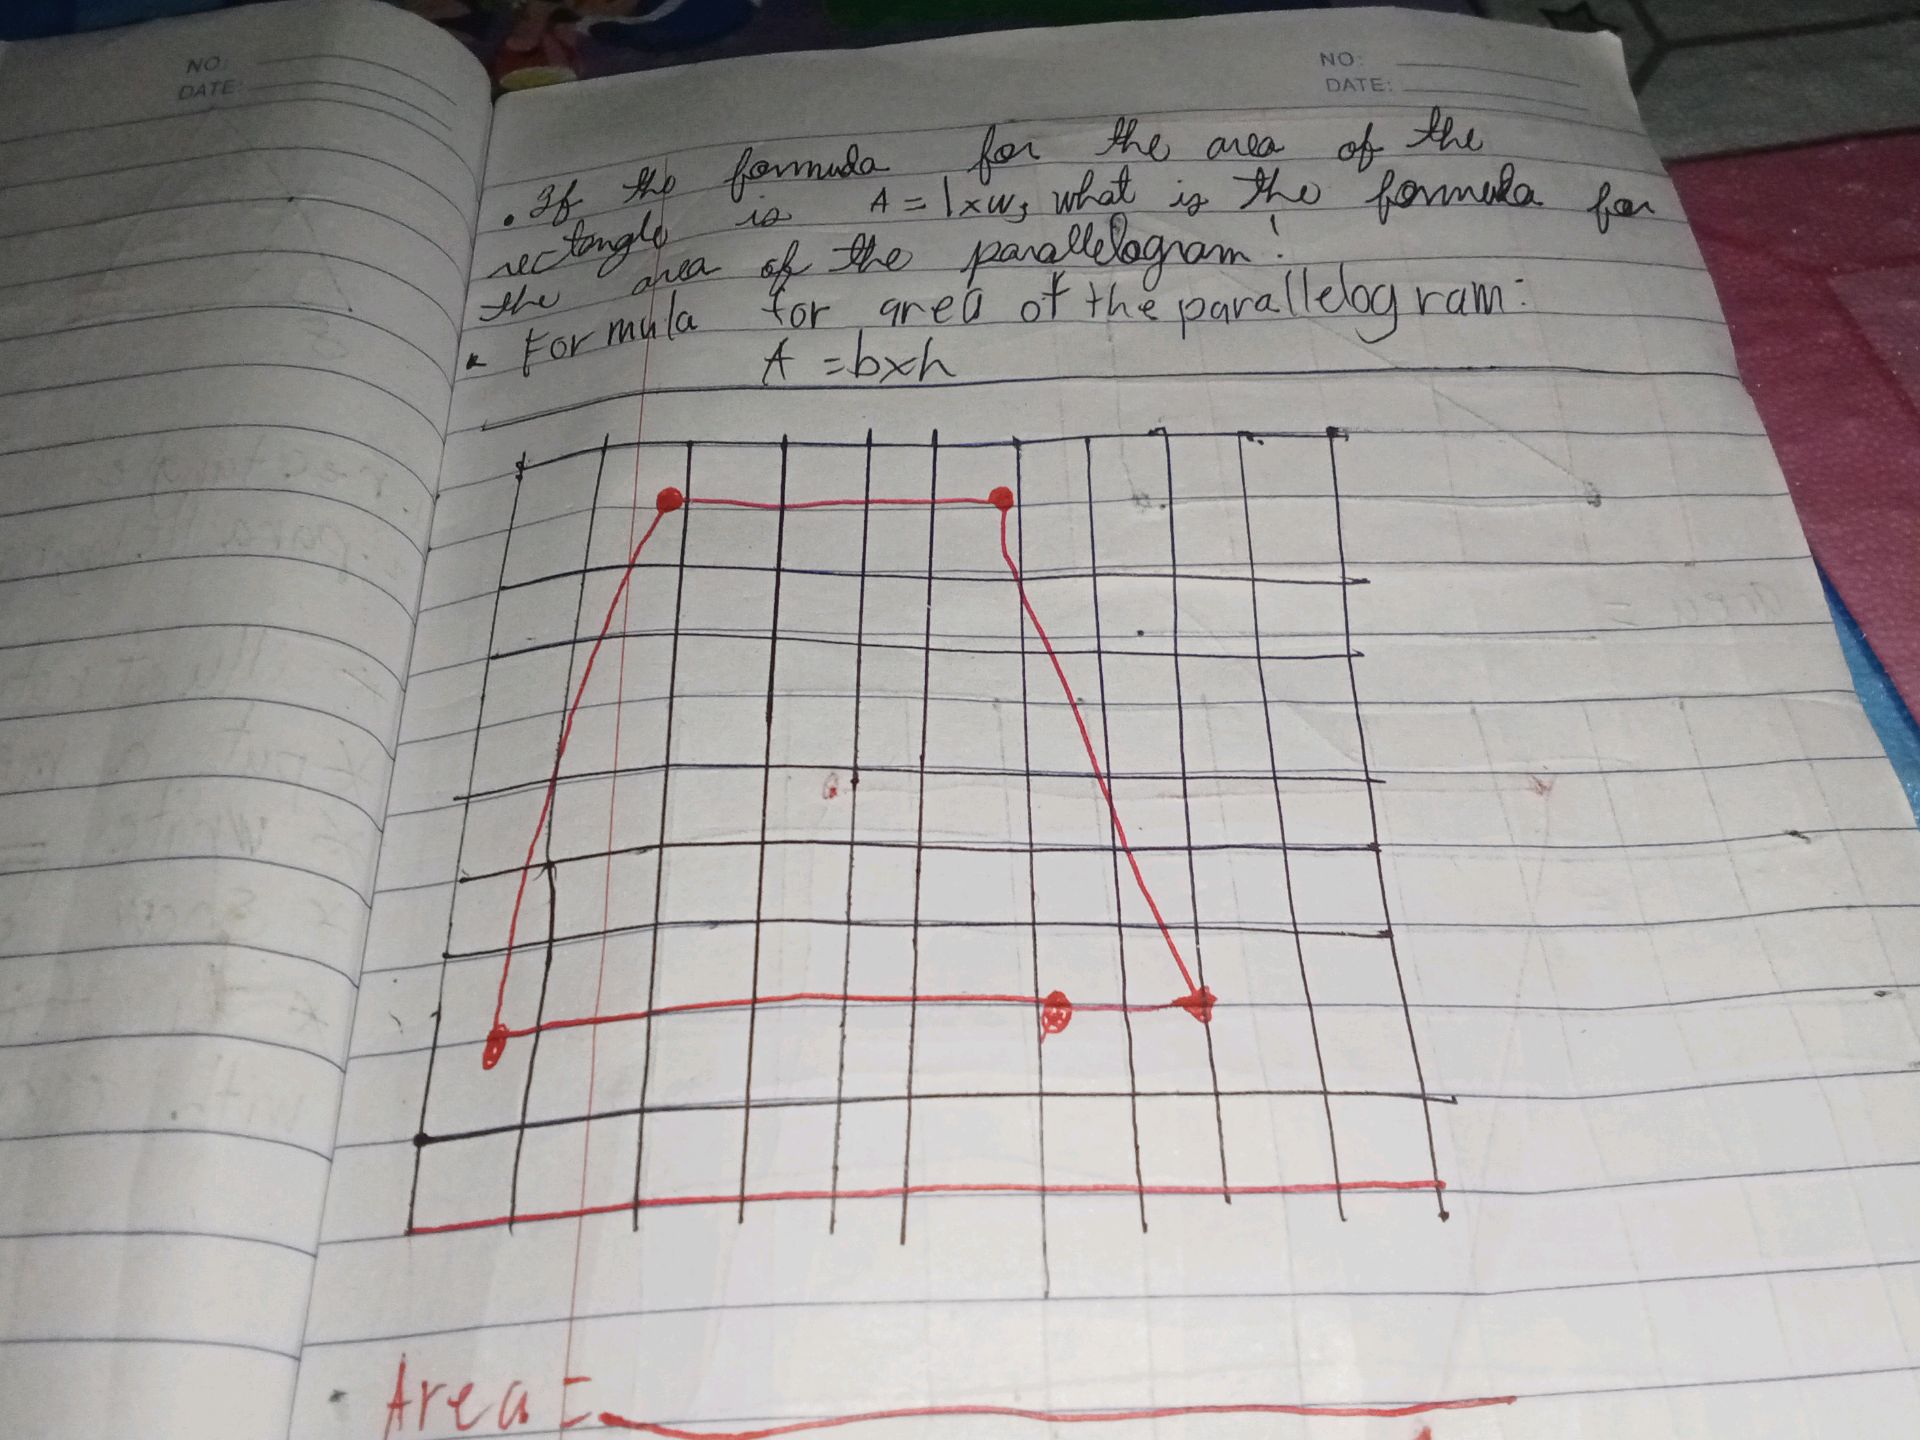 NO:
DATE:
NO:
DATE:
. If the formula for the area of the
rectangle is A = l x w, what is the formula for
the area of the parallelogram?
Formula for area of the parallelogram:
A = bxh
Area =